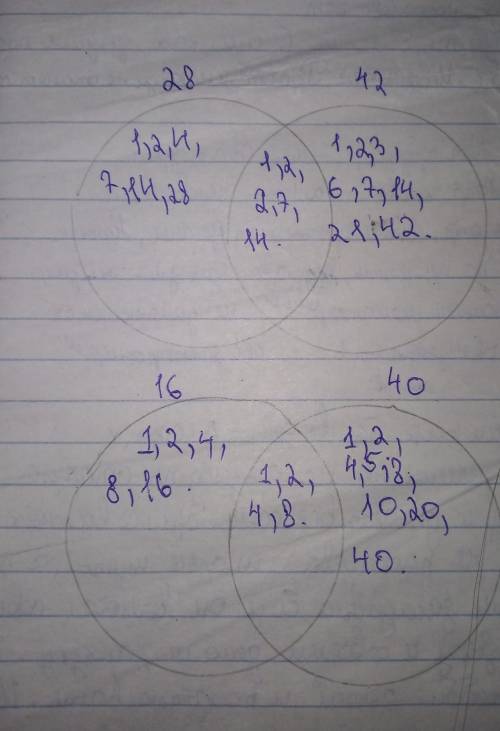 28 42
1,2,4,
7,14,28
1,2,
2,7,
14.
1,2,3,
6,7,14,
21,42.
16 40
1,2,4,
8,16.
1,2,
4,8.
1,2,
4,5,8,
10,20,
40.